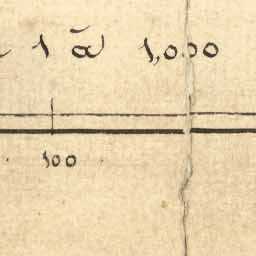 1 à 1,000
100